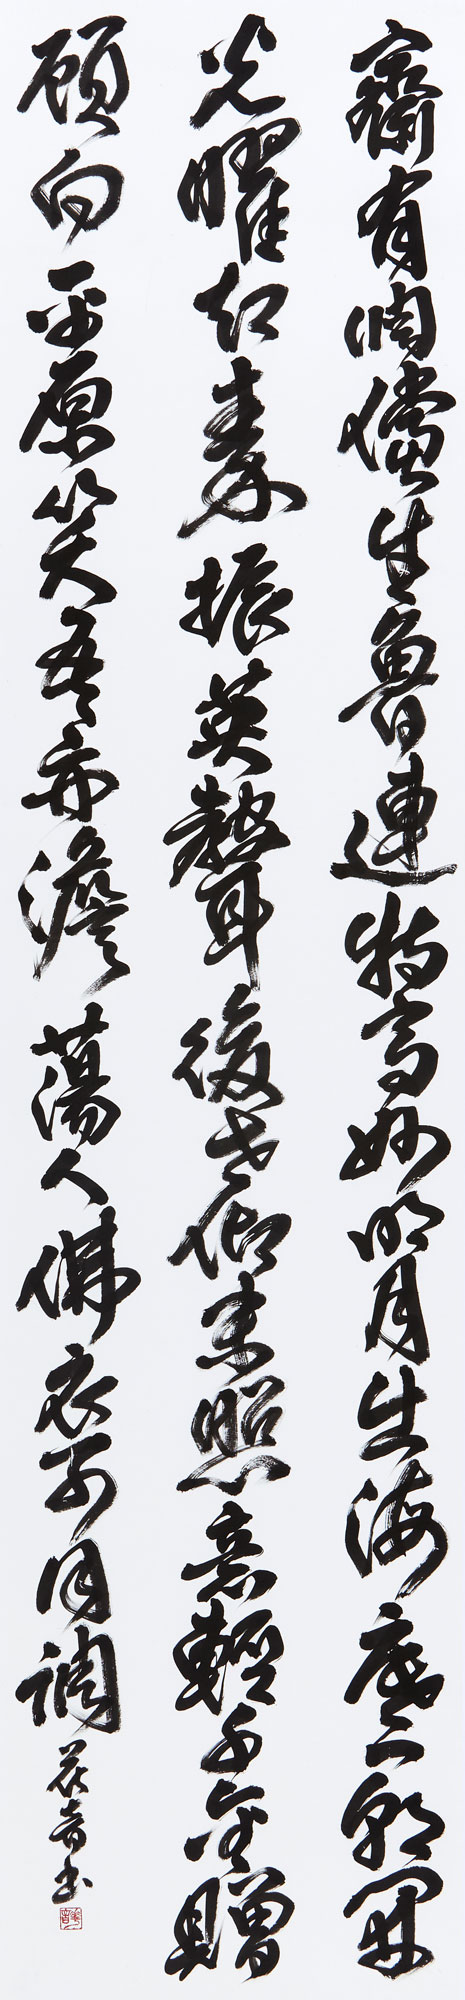 齊有倜儻生魯連特高妙明月出海底一朝開
光曜却秦振英聲後世仰末照意輕千金贈
顧向平原笑吾亦澹蕩人拂衣可同調
花音書